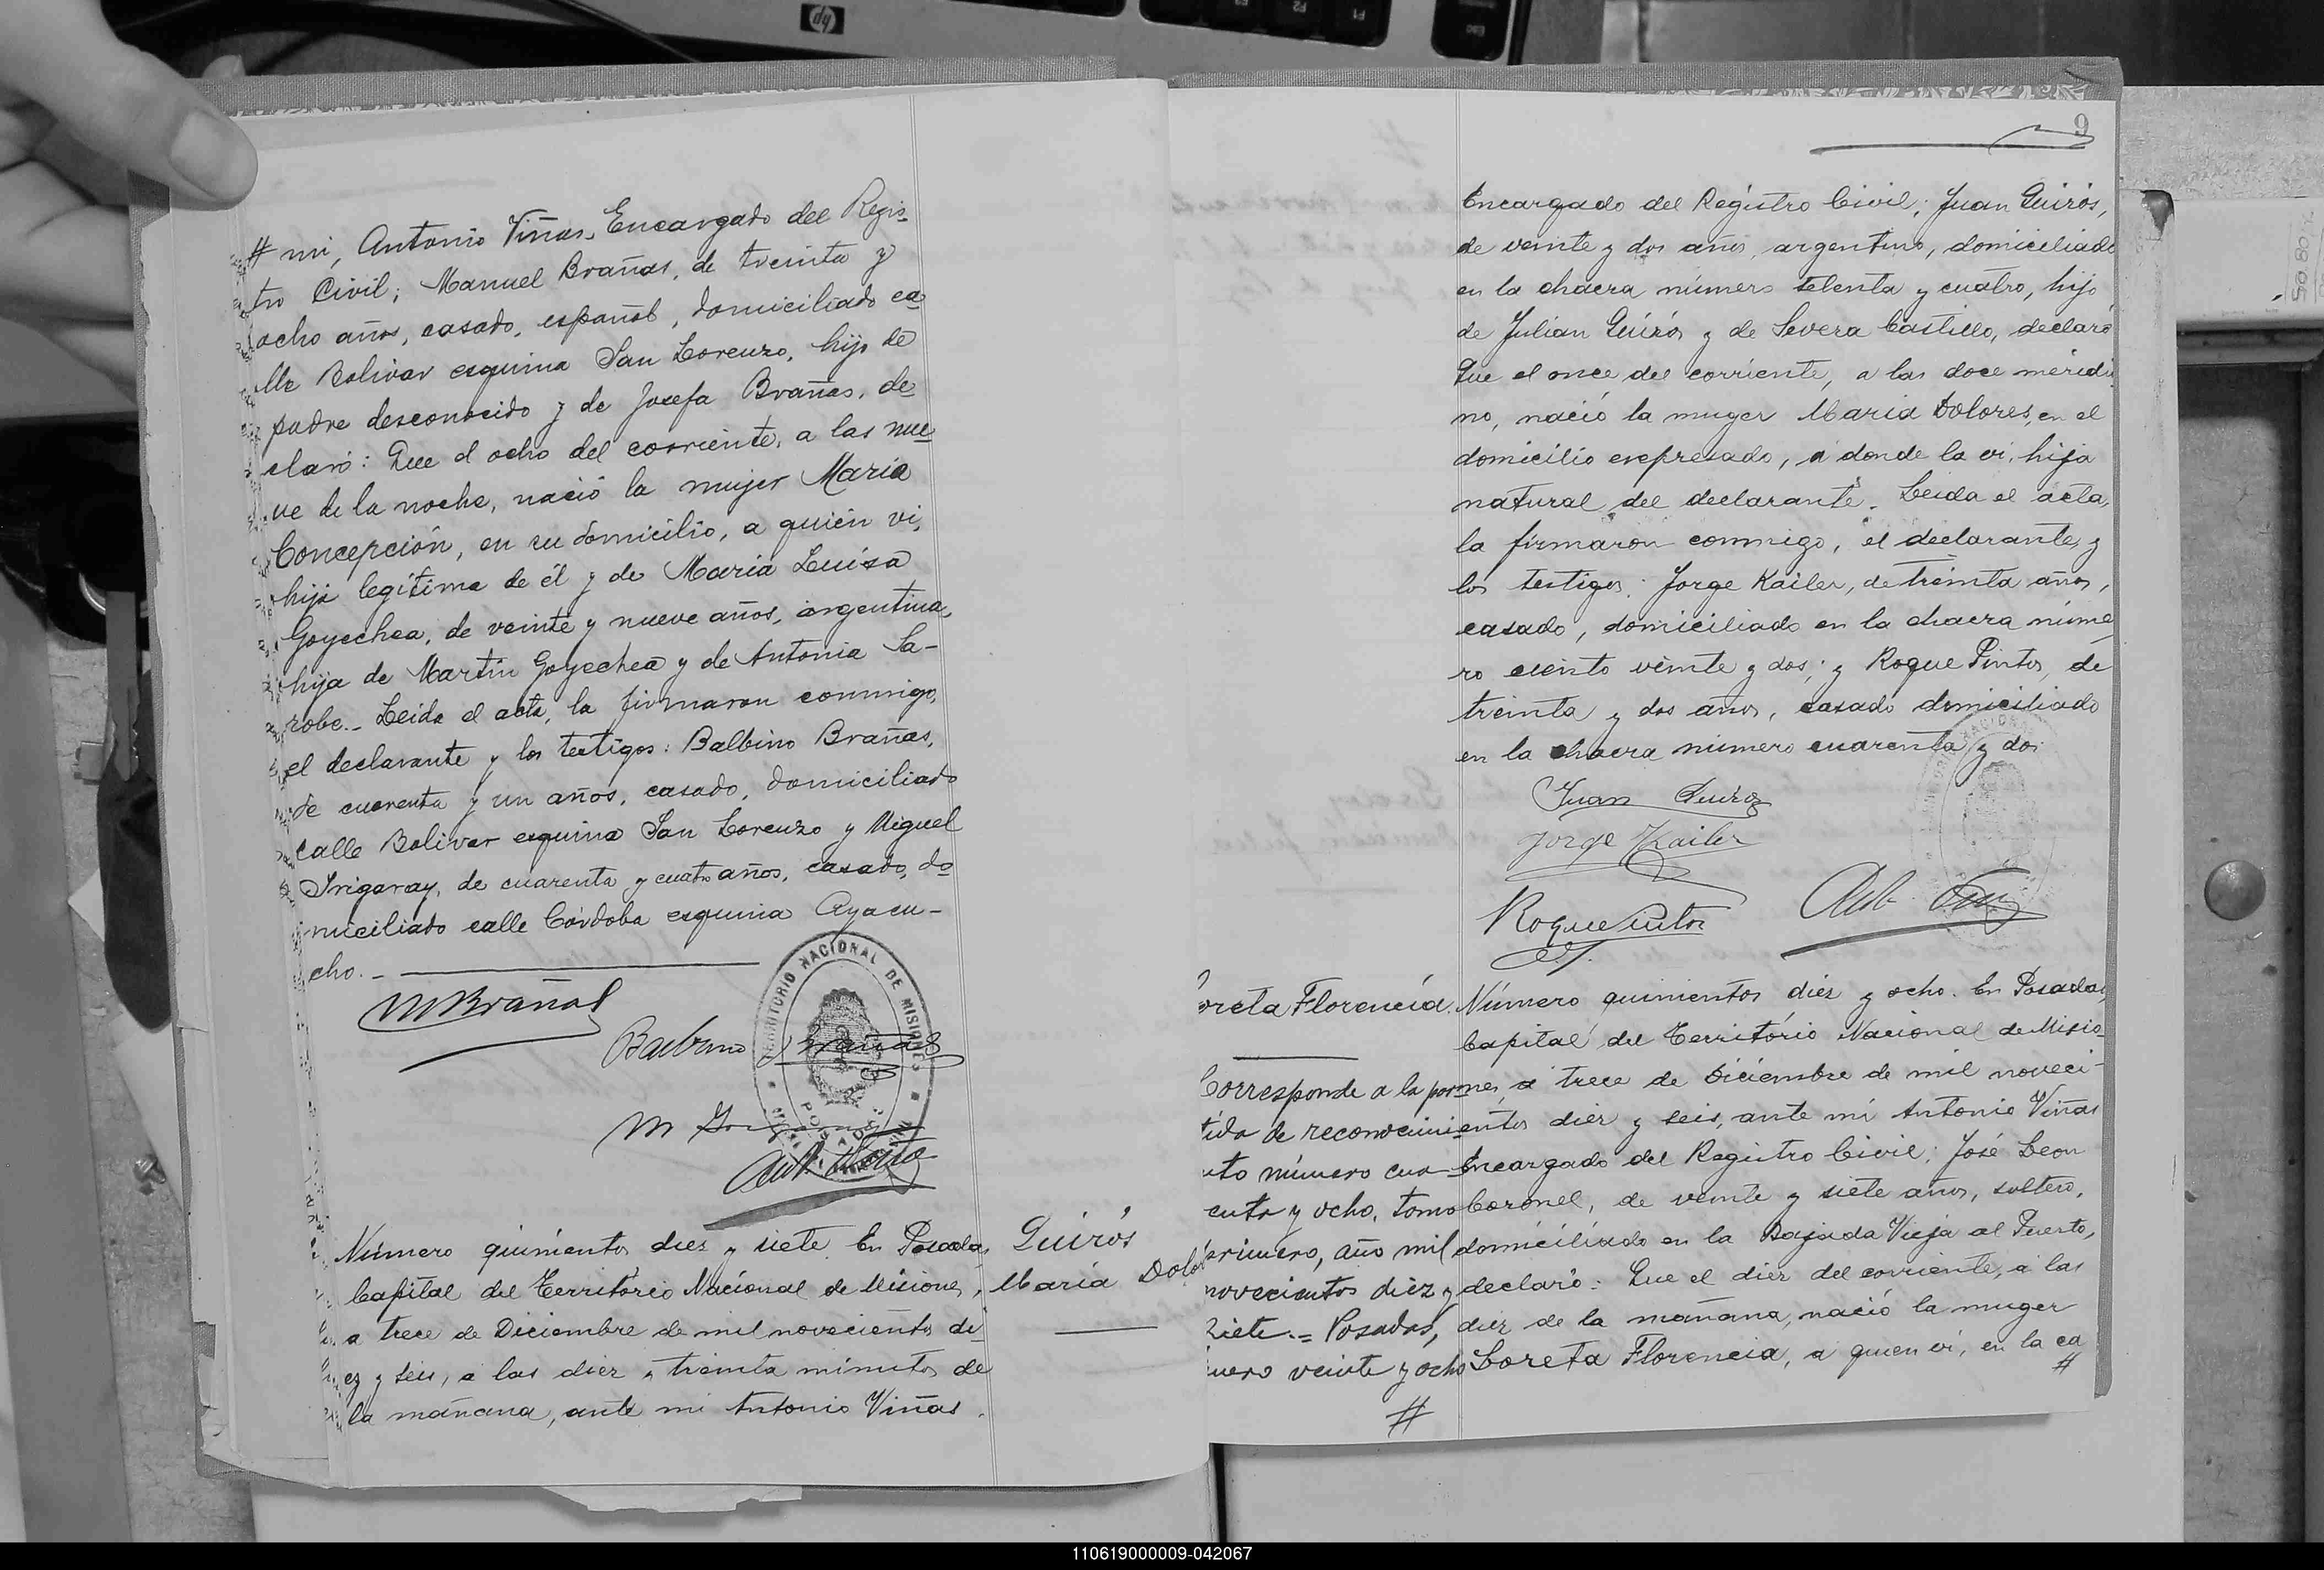 # mi, Antonio Viñas, Encargado del Regis-
tro Civil; Manuel Brañas, de treinta y
ocho años, casado, español, domiciliado ca-
lle Bolivar esquina San Lorenzo, hijo de
padre desconocido y de Josefa Brañas, de-
claró: Que el ocho del corriente, a las nue-
ve de la noche, nació la mujer María
Concepción, en su domicilio, a quién vi,
hija legítima de él y de María Luisa
Goyechea, de veinte y nueve años, argentina,
hija de Martín Goyechea y de Antonia Sa-
robe.- Leida el acta, la firmaron conmigo,
el declarante y los testigos: Balbino Brañas,
de cuarenta y un años, casado, domiciliado
calle Bolivar esquina San Lorenzo y Miguel
Irigaray, de cuarenta y cuatro años, casado, do-
miciliado calle Córdoba esquina Ayacu-
cho.-
MBrañas
Balbino Brañas
TERRITORIO NACIONAL DE MISIONES
POSADAS
Número quinientos diez y siete. En Posadas,
Capital del Territorio Nacional de Misiones,
a trece de Diciembre de mil novecientos di-
ez y seis, a las diez y treinta minutos de
la mañana, ante mi Antonio Viñas
Quirós
María Dolo
9
Encargado del Registro Civil; Juan Quirós,
de veinte y dos años, argentino, domiciliado
en la chacra número setenta y cuatro, hijo
de Julian Quirós y de Severa Castillo, declaró
Que el once del corriente, a las doce meridia
no, nació la muger Maria Dolores, en el
domicilio expresado, a donde la vi, hija
natural del declarante. Leida el acta,
la firmaron conmigo, el declarante y
los testigos: Jorge Kailer, de treinta años,
casado, domiciliado en la chacra núme
ro ciento veinte y dos; y Roque Pintos, de
treinta y dos años, casado domiciliado
en la chacra número cuarenta y dos.
Juan Quiroz
Jorge Kailer
Roque Pintos
oreta Florencia.
Corresponde a la par-
tida de reconocimi-
nto número cua-
enta y ocho, tomo
primero, año mil
novecientos diez y
siete.= Posadas,
nero veinte y ocho
#
Número quinientos diez y ocho. En Posadas,
Capital del Territorio Nacional de Misio-
nes, a trece de Diciembre de mil noveci-
entos diez y seis, ante mi Antonio Viñas
Encargado del Registro Civil; José Leon
Coronel, de veinte y siete años, soltero,
domiciliado en la Bajada Vieja al Puerto,
declaró: Que el diez del corriente, a las
diez de la mañana, nació la muger
Loreta Florencia, a quien vi, en la ca
#
110619000009-042067